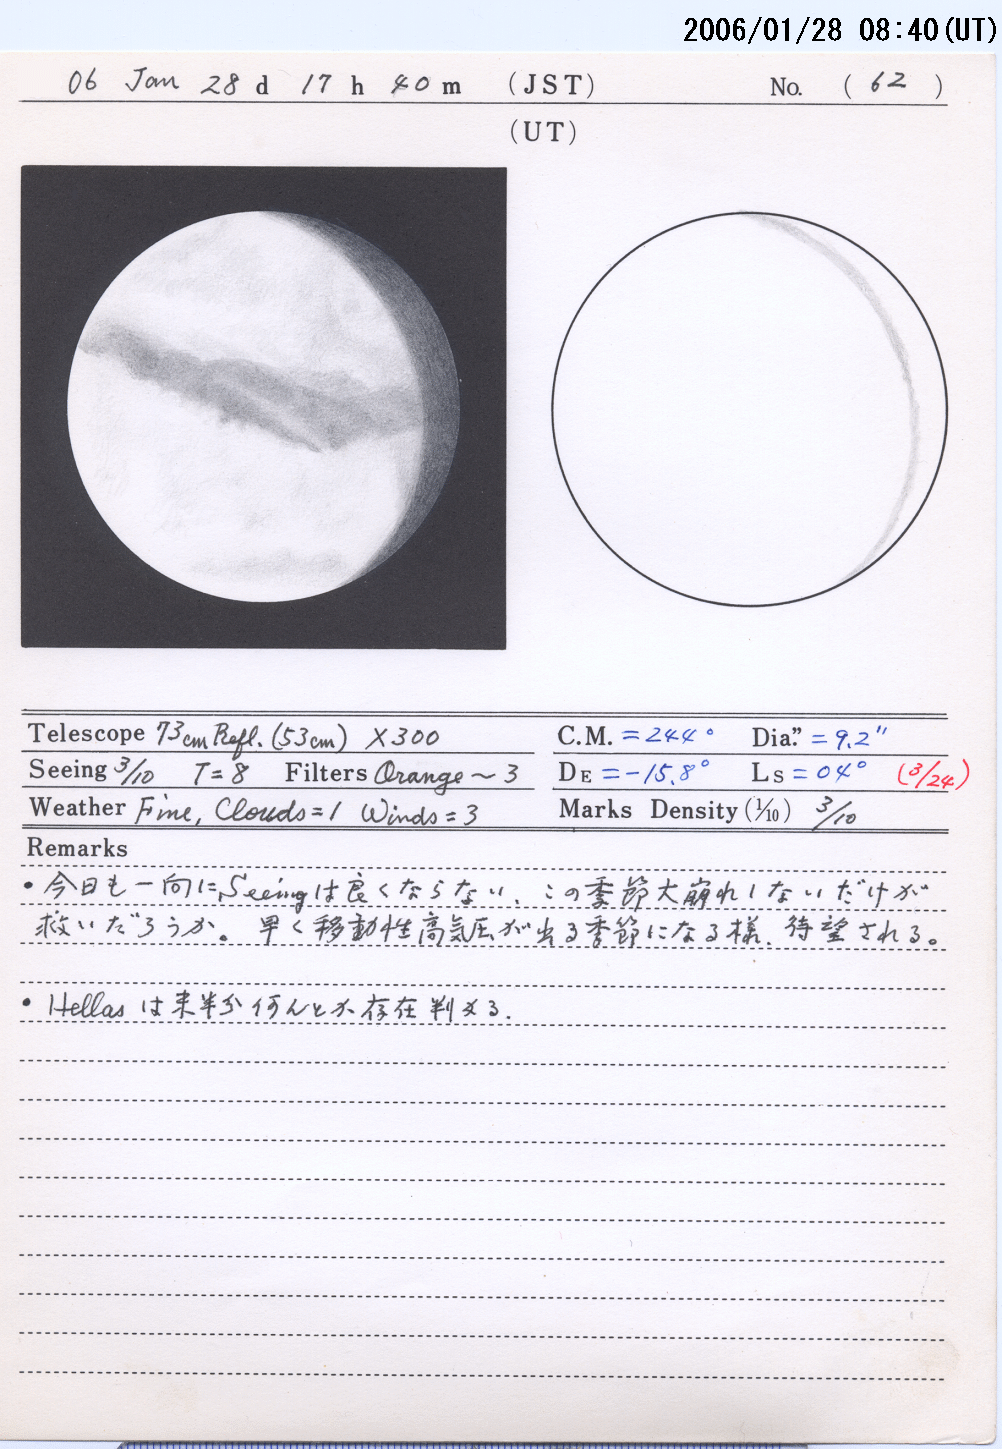 2006/01/28 08:40(UT)
06 Jan 28 d 17 h 40 m (JST) No. ( 62 )
(UT)
Telescope 73cm Refl. (53cm) X300
C.M. = 244° Dia." = 9.2"
Seeing 3/10 T=8 Filters Orange ~ 3
DE = -15.8° Ls = 04° (3/24)
Weather Fine, Clouds=1 Winds=3
Marks Density (1/10) 3/10
Remarks
• 今日も一向にSeeingは良くならない、この季節大崩れしないだけが
救いだろうか。早く移動性高気圧が出る季節になる様、待望される。
• Hellasは来半分何んとか存在判める.